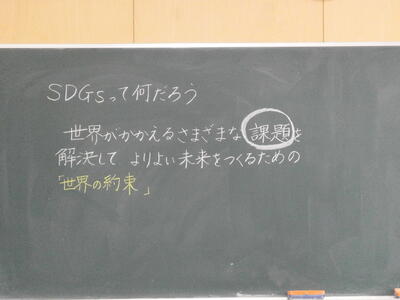 SDGsって何だろう
世界がかかえるさまざまな課題を
解決して よりよい未来をつくるための
「世界の約束」